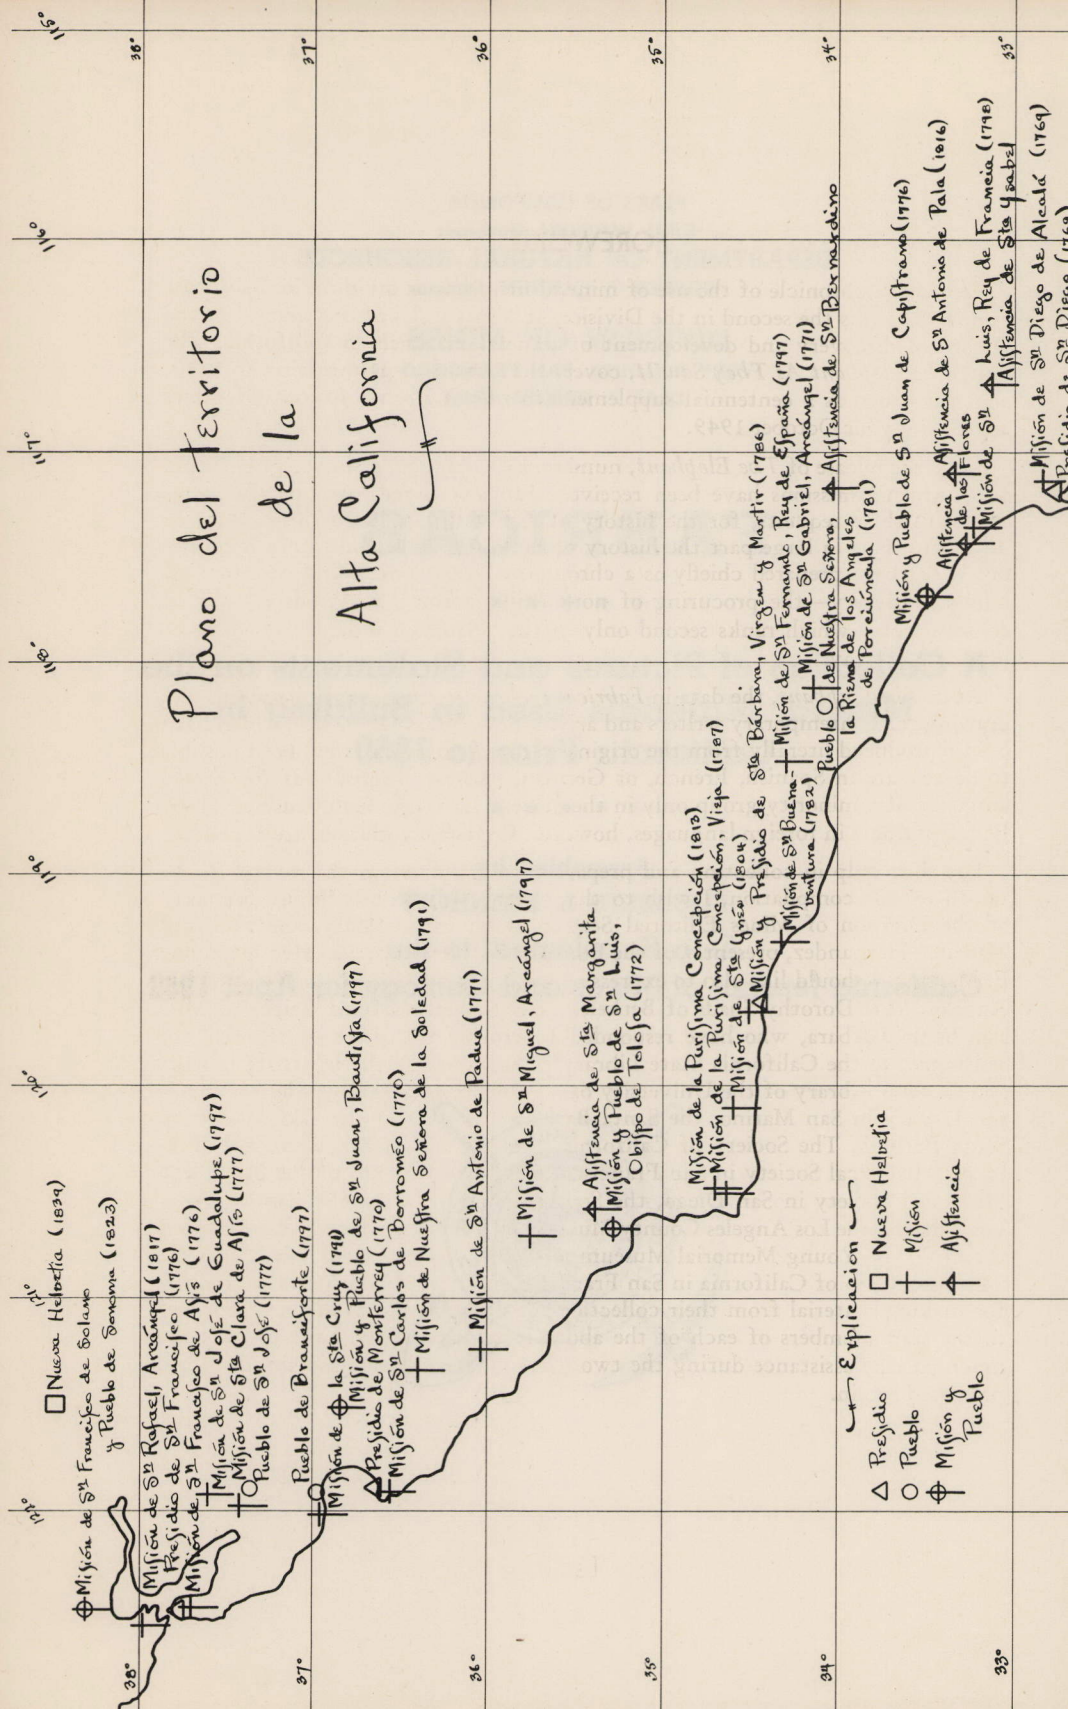 Plano del territorio
de la
Alta California
115°
116°
117°
118°
119°
120°
121°
122°
38°
37°
36°
35°
34°
33°
38°
37°
36°
35°
34°
33°
Nueva Helvetia (1839)
Misión de Sn Francisco de Solano
y Pueblo de Sonoma (1823)
Misión de Sn Rafael, Arcángel (1817)
Presidio de Sn Francisco (1776)
Misión de Sn Francisco de Asís (1776)
Misión de Sn José de Guadalupe (1797)
Misión de Sta Clara de Asís (1777)
Pueblo de Sn José (1777)
Pueblo de Branciforte (1797)
Misión de la Sta Cruz (1791)
Misión y Pueblo de Sn Juan, Bautista (1797)
Presidio de Monterrey (1770)
Misión de Sn Carlos de Borroméo (1770)
Misión de Nuestra Señora de la Soledad (1791)
Misión de Sn Antonio de Padua (1771)
Misión de Sn Miguel, Arcángel (1797)
Asistencia de Sta Margarita
Misión y Pueblo de Sn Luis,
Obispo de Tolosa (1772)
Misión de la Purisima Concepción (1813)
Misión de la Purisima Concepción, Vieja (1787)
Misión de Sta Ynes (1804)
Misión y Presidio de Sta Bárbara, Virgen y Martir (1786)
Misión de Sn Buena-
ventura (1782)
Misión de Sn Fernando, Rey de España (1797)
Misión de Sn Gabriel, Arcángel (1771)
Pueblo de Nuestra Señora,
la Riena de los Angeles
de Porciúncula (1781)
Asistencia de Sn Bernardino
Misión y Pueblo de Sn Juan de Capistrano (1776)
Asistencia
de las Flores
Asistencia de Sn Antonio de Pala (1816)
Misión de Sn Luis, Rey de Francia (1798)
Asistencia de Sta Ysabel
Misión de Sn Diego de Alcalá (1769)
Presidio de Sn Diego (1769)
Explicacion
Presidio
Pueblo
Misión y
Pueblo
Nueva Helvetia
Misión
Asistencia